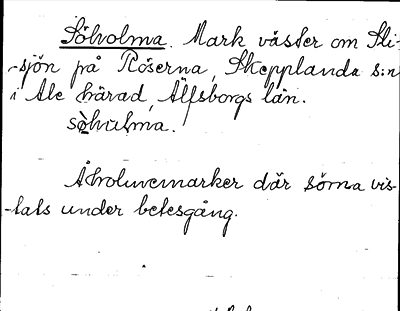 Söholma. Mark väster om Sli-
-sjön på Röserna, Skepplanda s:n
i Ale härad, Älfsborgs län.
söhulma.
där sörna vis-
-tats under betesgång.